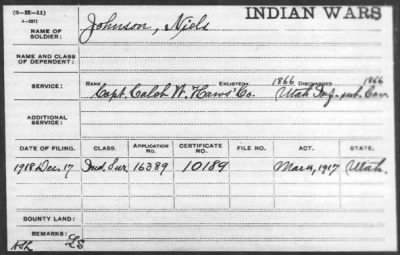 (3-IK-41)
INDIAN WARS
NAME OF SOLDIER: Johnson, Niels
NAME AND CLASS OF DEPENDENT:
RANK ENLISTED 1866 DISCHARGED 1866
SERVICE: Capt. Caleb W. Haws' Co. Utah Cav
ADDITIONAL SERVICE:
DATE OF FILING. CLASS. APPLICATION No. CERTIFICATE No. FILE NO. ACT. STATE.
1918 Dec. 17 Ind. Sur. 16389 10189 Mar. 4, 1917 Utah.
BOUNTY LAND:
REMARKS: